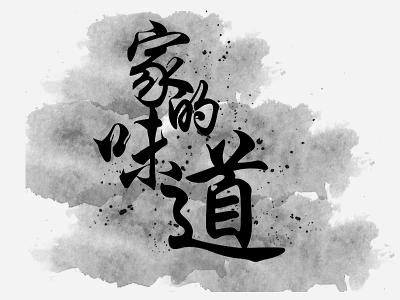 家的味道